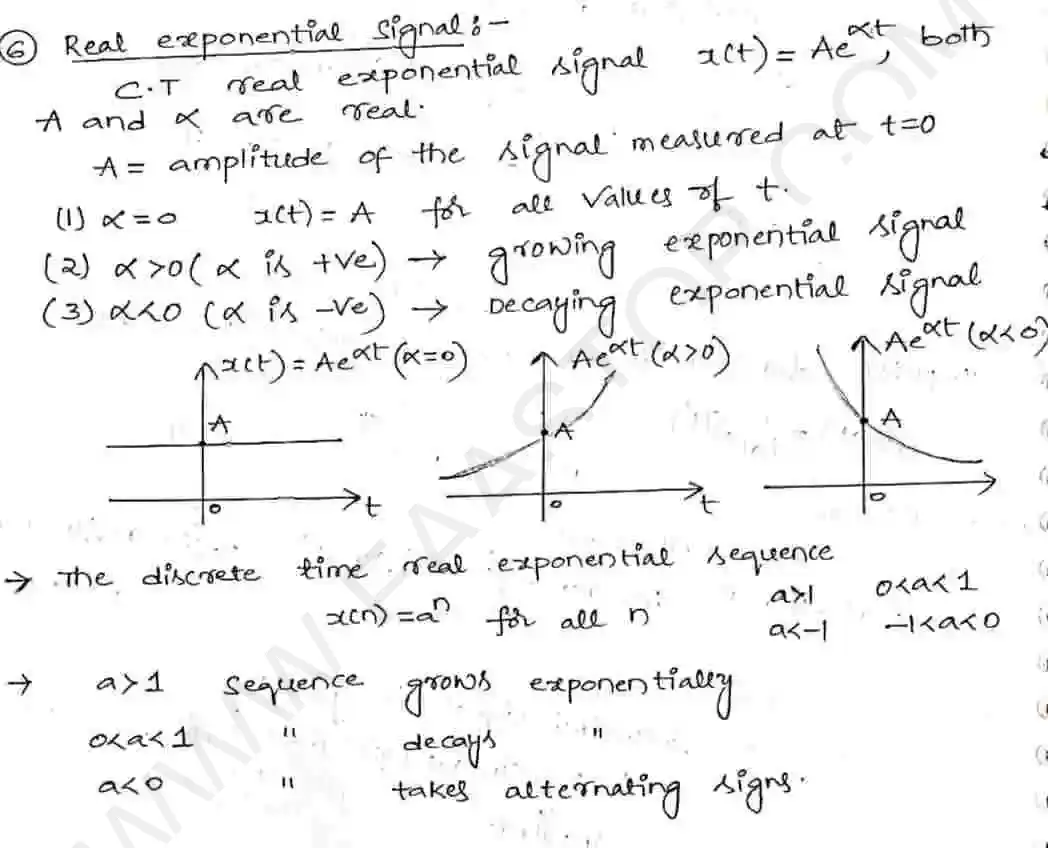 6 Real exponential signal :-
C.T real exponential signal x(t) = Ae^αt, both
A and α are real.
A = amplitude of the signal measured at t=0
(1) α=0 x(t) = A for all values of t.
(2) α>0 (α is +ve) → growing exponential signal
(3) α<0 (α is -ve) → Decaying exponential signal
x(t) = Ae^αt (α=0) Ae^αt (α>0) Ae^αt (α<0)
A A A
0 t 0 t 0
→ The discrete time real exponential sequence
x(n) = a^n for all n a>1 0<a<1
a<-1 -1<a<0
→ a>1 sequence grows exponentially
0<a<1 " decays "
a<0 " takes alternating signs.